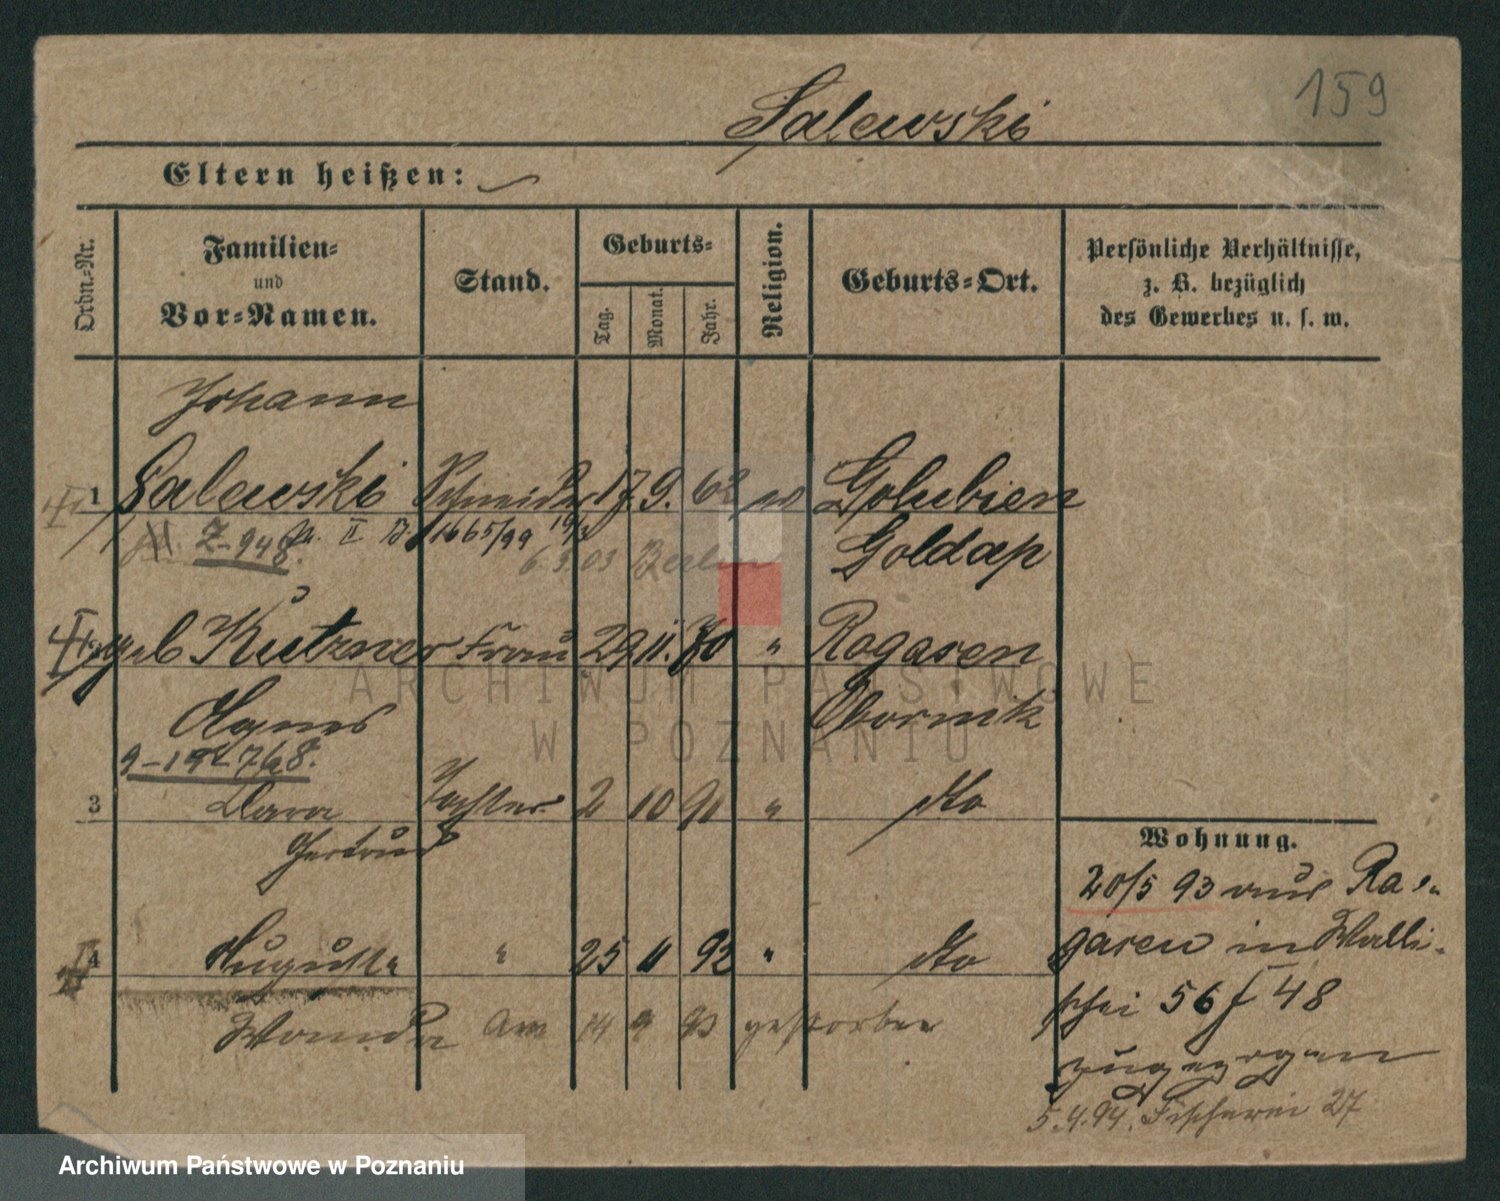 159
Salewski
Eltern heißen:
Ordn.-Nr.
Familien-
und
Vor-Namen.
Stand.
Geburts-
Tag.
Monat.
Jahr.
Religion.
Geburts-Ort.
Persönliche Verhältnisse,
z. B. bezüglich
des Gewerbes u. s. w.
Johann
1 Salewski Schneider 17. 9. 63 Golubien
Z-948. II 1665/99 Goldap
6.3.03 Berlin
geb Kutzner Frau 29 11. 70 " Rogasen
Agnes Obornik
3 Clara Tochter 2 10 91 " dto
Gertrud
4 Auguste " 25 11 92 " dto
Wanda am 14 9 93 gestorben
Wohnung.
20/5 93 aus Ro-
gasen in Walli-
schei 56 f 48
zugezogen
5.4.94. Fischerei 27
ARCHIWUM PAŃSTWOWE
W POZNANIU
Archiwum Państwowe w Poznaniu